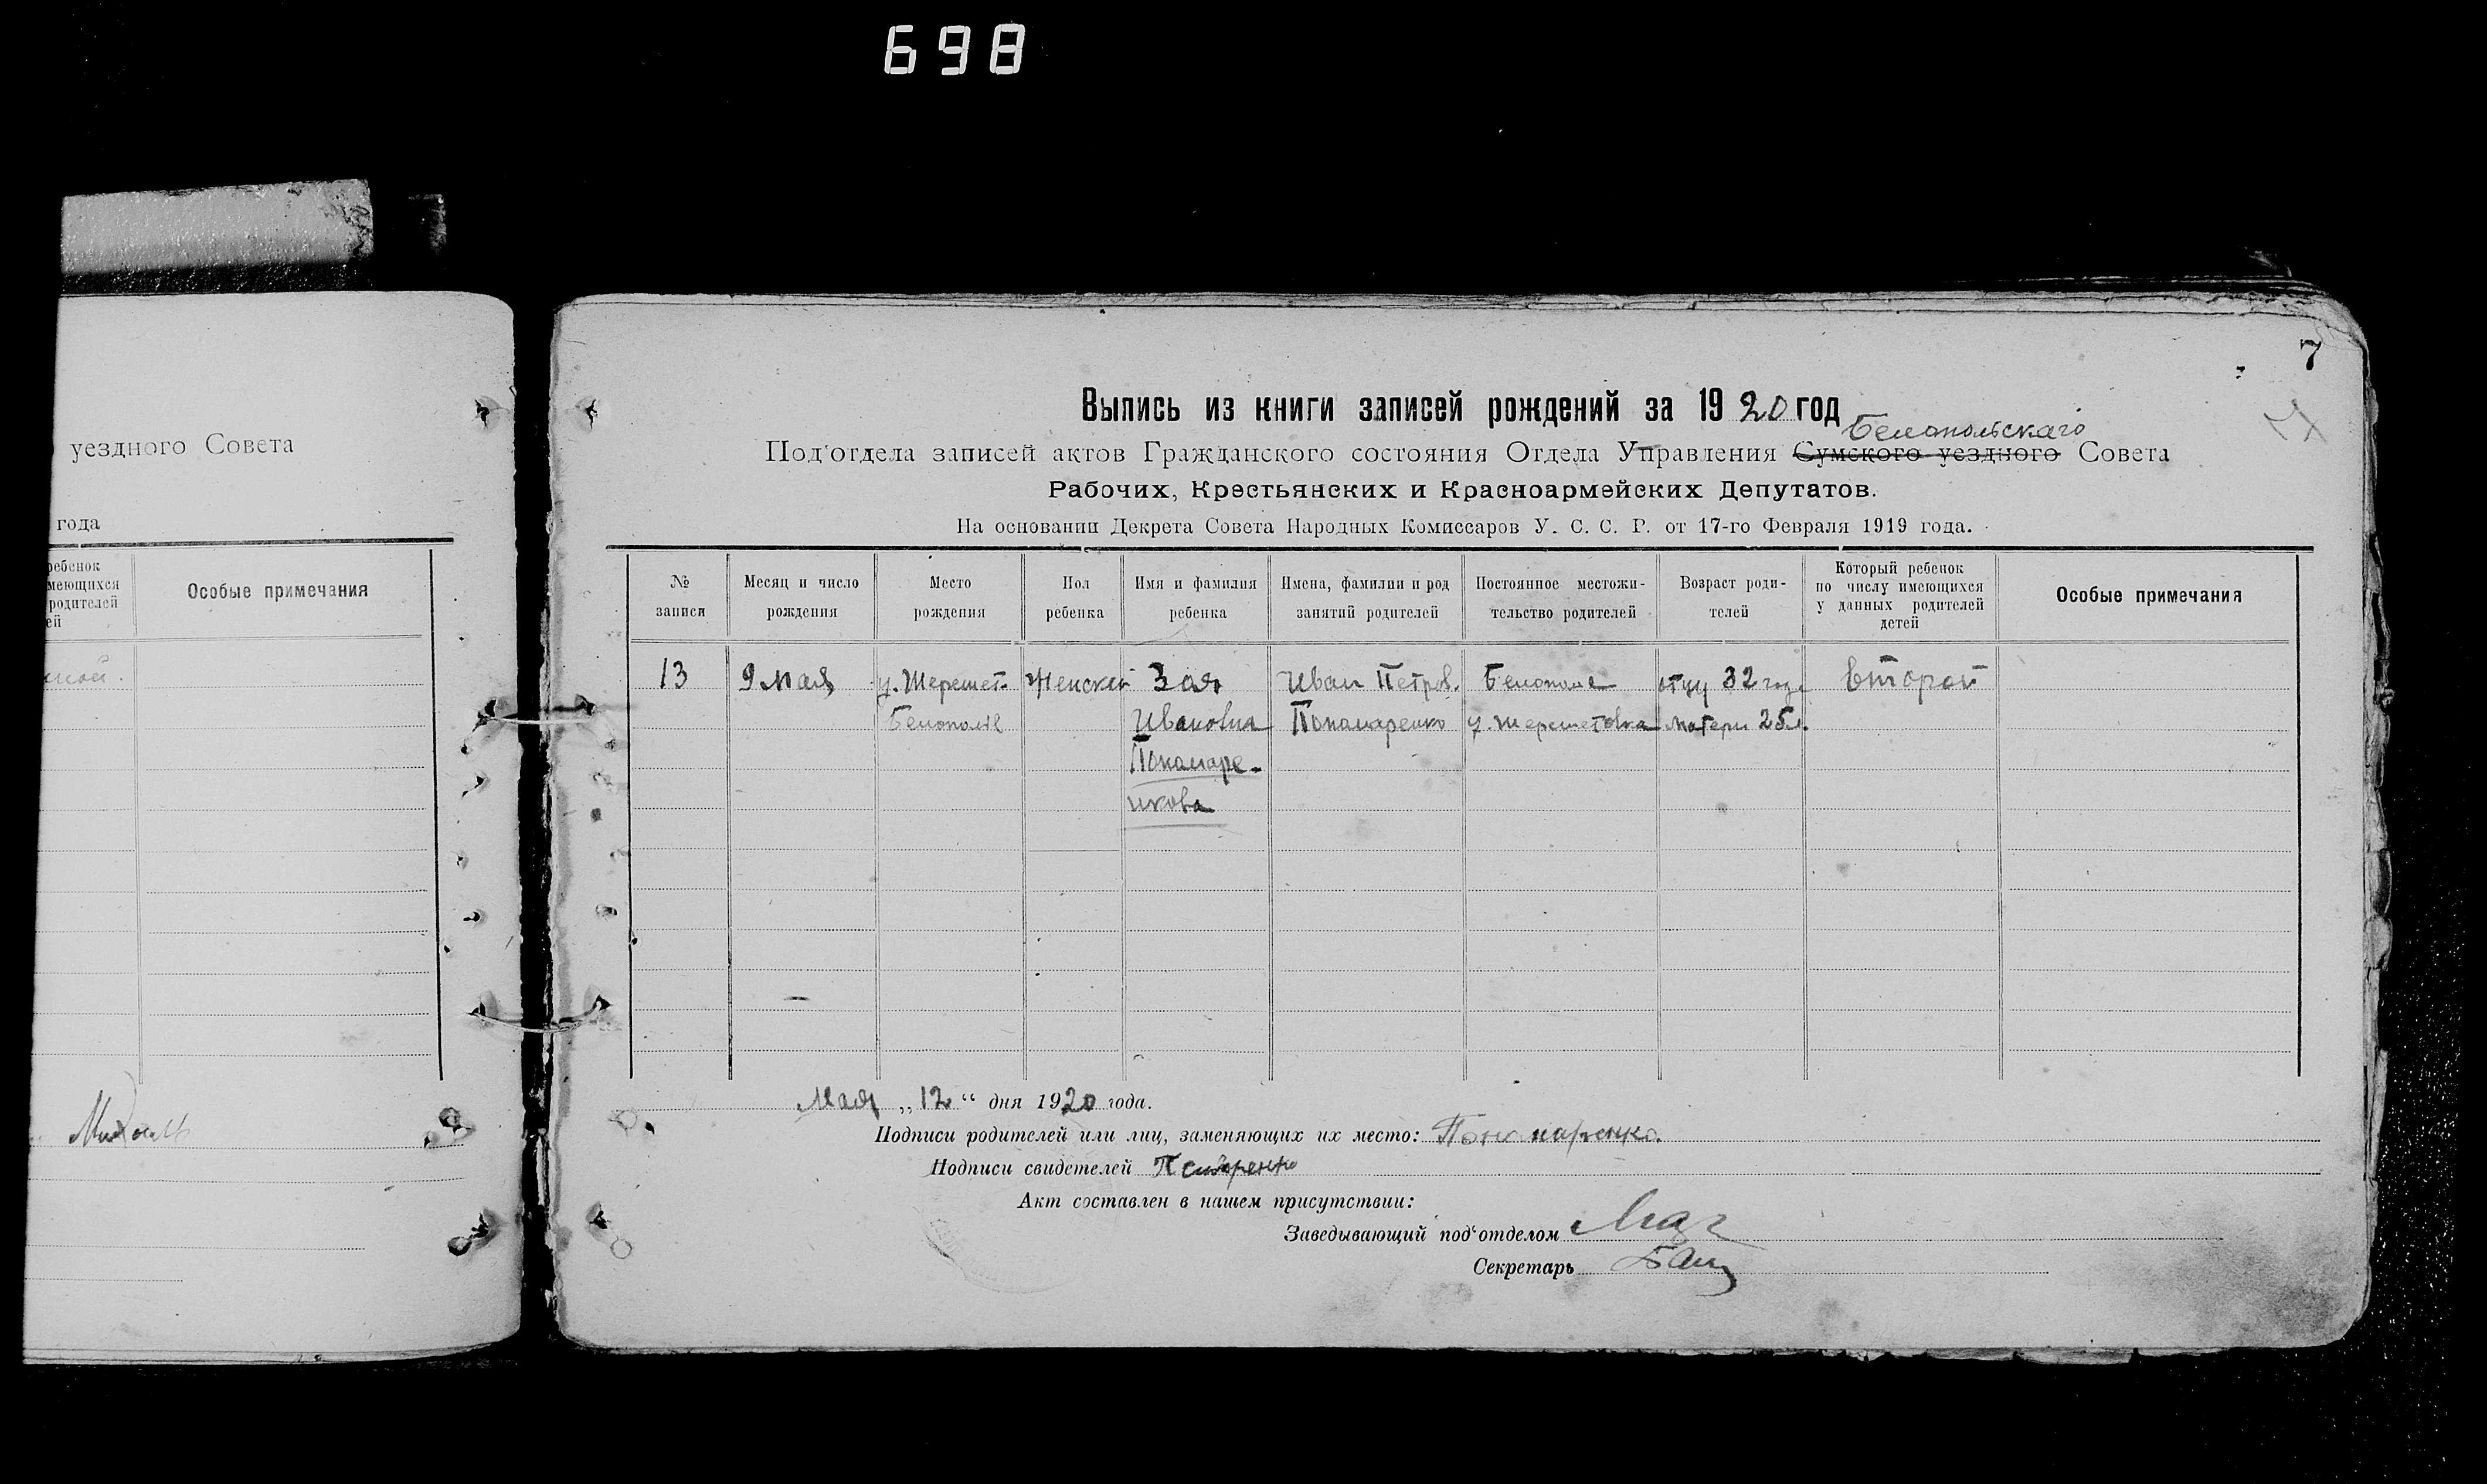 698
7
уездного Совета
года
ребенок
имеющихся
родителей
ей
Особые примечания
Выпись из книги записей рождений за 1920 год
Белопольскаго
Под'отдела записей актов Гражданского состояния Отдела Управления Сумского уездного Совета
Рабочих, Крестьянских и Красноармейских Депутатов.
На основании Декрета Совета Народных Комиссаров У. С. С. Р. от 17-го Февраля 1919 года.
№ записи
Месяц и число рождения
Место рождения
Пол ребенка
Имя и фамилия ребенка
Имена, фамилии и род занятий родителей
Постоянное местожи- тельство родителей
Возраст роди- телей
Который ребенок по числу имеющихся у данных родителей детей
Особые примечания
13 9 мая у. Шерешет. Женский Зоя Иван Петров. Белополе отцу 32 года Второй
Белополье Ивановна Пономаренко у. Шерешетовка матери 25 л.
Пономаре-
нкова
Мая „12“ дня 1920 года.
Подписи родителей или лиц, заменяющих их место: Пономаренко.
Подписи свидетелей
Акт составлен в нашем присутствии:
Заведывающий под'отделом
Секретарь